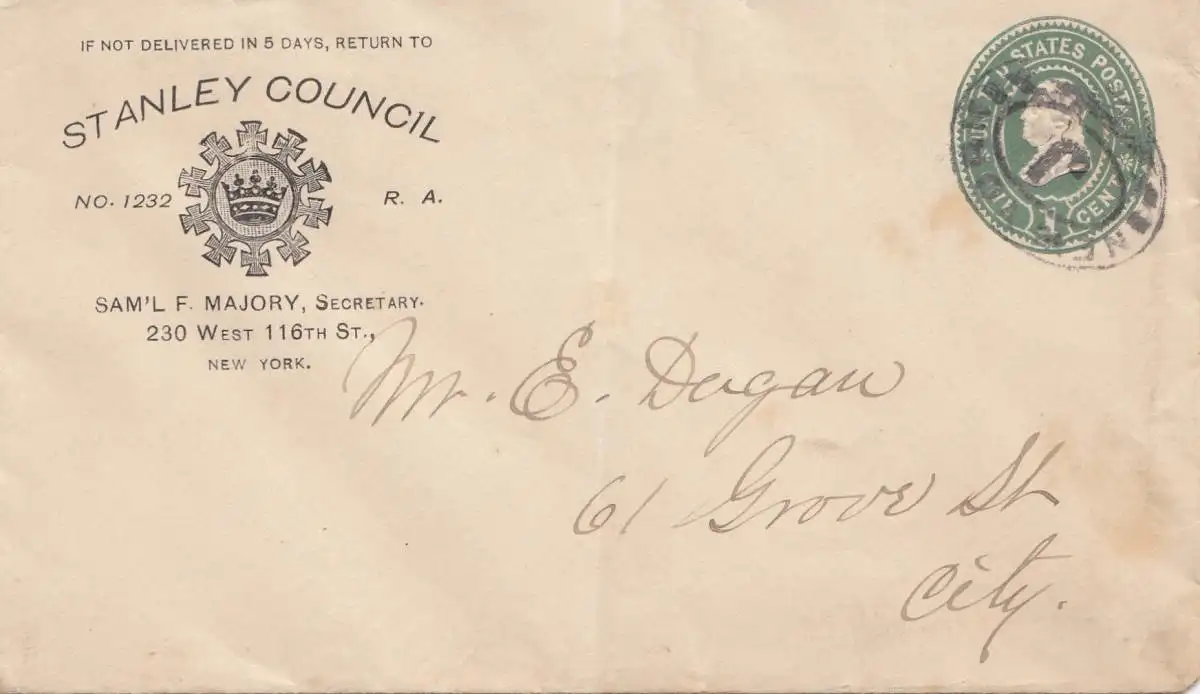 IF NOT DELIVERED IN 5 DAYS, RETURN TO
STANLEY COUNCIL
NO. 1232 R. A.
SAM'L F. MAJORY, SECRETARY.
230 WEST 116TH ST.,
NEW YORK.
UNITED STATES POSTAGE
1 CENT
Mr. E. Dugan
61 Grove St
City.